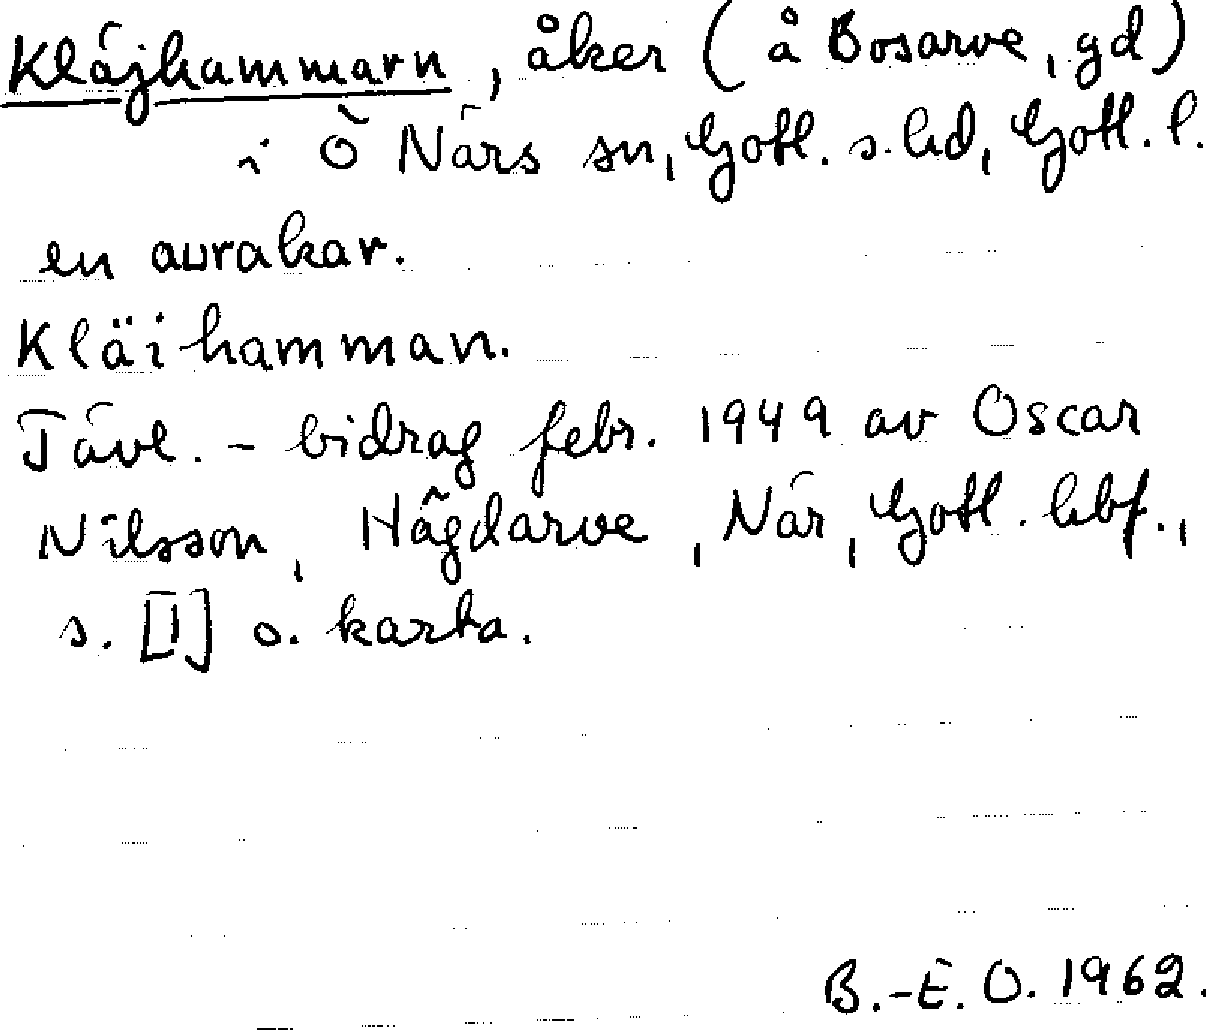 Kläjhammarn, åker (å Bosarve, gd)
i Ö Närs sn, Gotl. s. hd, Gotl. l.
en aurakar.
Kläi hamman.
Tävl.-bidrag febr. 1949 av Oscar
Nilsson, Hägdarve, När, Gotl. hbf.,
s. [1] o. karta.
B.-E. O. 1962.